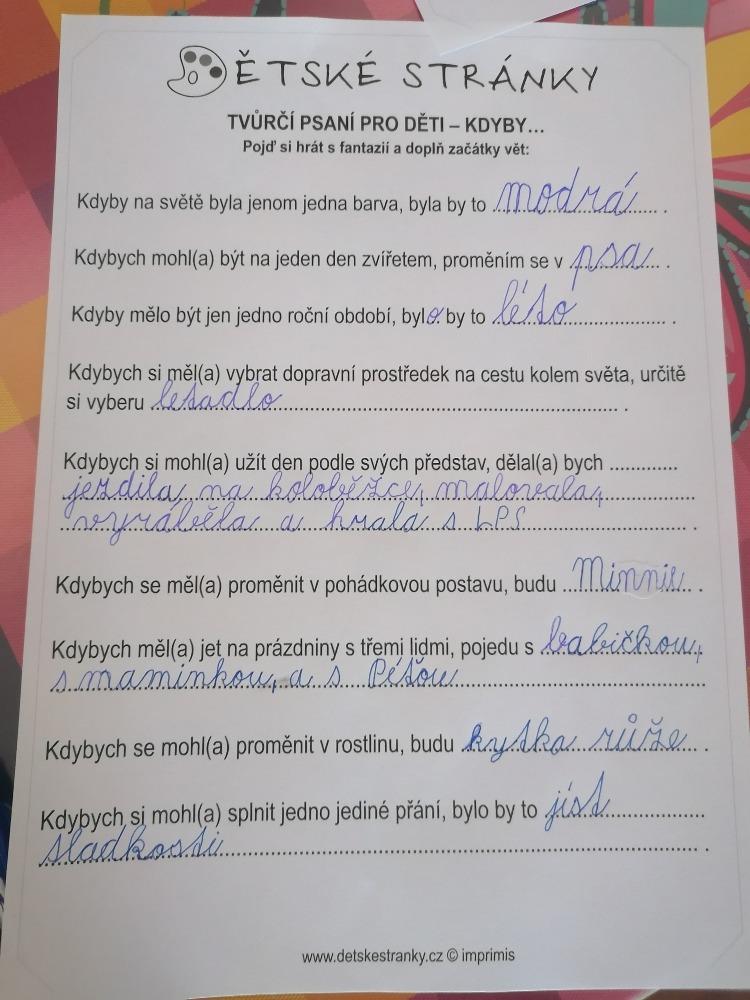 DĚTSKÉ STRÁNKY
TVŮRČÍ PSANÍ PRO DĚTI – KDYBY...
Pojď si hrát s fantazií a doplň začátky vět:
Kdyby na světě byla jenom jedna barva, byla by to modrá.
Kdybych mohl(a) být na jeden den zvířetem, proměním se v psa.
Kdyby mělo být jen jedno roční období, bylo by to léto.
Kdybych si měl(a) vybrat dopravní prostředek na cestu kolem světa, určitě
si vyberu letadlo.
Kdybych si mohl(a) užít den podle svých představ, dělal(a) bych .............
jezdila na koloběžce, malovala,
vyráběla a hrála s LPS.
Kdybych se měl(a) proměnit v pohádkovou postavu, budu Minnie.
Kdybych měl(a) jet na prázdniny s třemi lidmi, pojedu s babičkou,
s maminkou, a s Péťou.
Kdybych se mohl(a) proměnit v rostlinu, budu kytka růže.
Kdybych si mohl(a) splnit jedno jediné přání, bylo by to jíst
sladkosti.
www.detskestranky.cz © imprimis